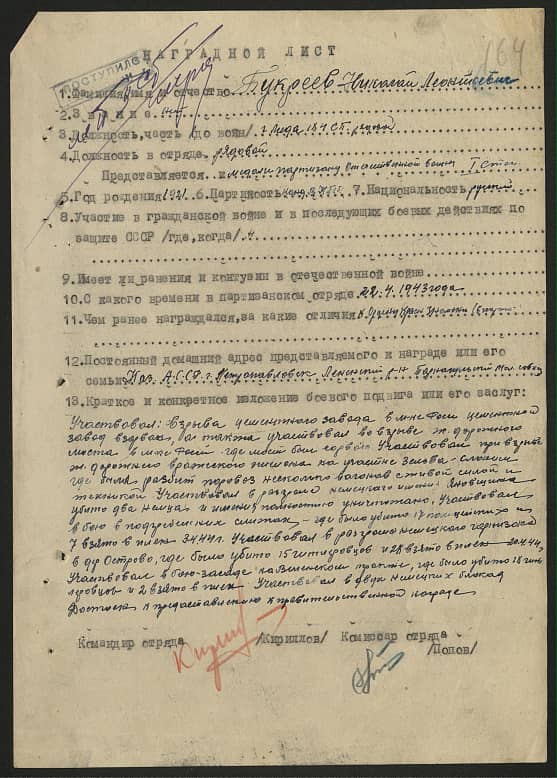 164
НАГРАДНОЙ ЛИСТ
ПОСТУПИЛО
1.Фамилия,имя и отчество Букреев Николай Леонтьевич
2.Звание
3.Должность,часть /до войны/ г Лида
4.Должность в отряде рядовой
Представляется к медали Партизану Отечественной войны I Степ.
5.Год рождения 1921 6.Партийность 7.Национальность русский
8.Участие в гражданской войне и в последующих боевых действиях по
защите СССР /где,когда/
9.Имеет ли ранения и контузии в отечественной войне
10.С какого времени в партизанском отряде 22.4.1943 года
11.Чем ранее награждался,за какие отличия
12.Постоянный домашний адрес представляемого к награде или его
семьи Каз. АССР г. Петропавловск Ленинский р-н
13.Краткое и конкретное изложение боевого подвига или его заслуг:
Участвовал: Взрыва цементного завода в м-не Роси цементной
завод взорван, а также участвовал во взрыве ж. дорожного
моста в м-не Роси где мост был сорван. Участвовал при взрыве
ж. дорожного вражеского эшелона на участке Зельва-Слоним
где были разбит паровоз несколько вагонов с живой силой и
техникой Участвовал в разгроме немецкого имения Яновщина
убито два немца и имение полностью уничтожено, Участвовал
в бою в где было убито 17 полицейских и
7 взято в плен 3.4.44г. Участвовал в разгроме немецкого гарнизона
в др Острово, где было убито 15 гитлеровцов и 28 взято в плен 20.4.44,
Участвовал в бою-засаде на Виленском тракте, где было убито 18 гит-
леровцов и 2 взято в плен Участвовал в двух немецких блокад
Достоен к предоставлению к правительственной награде
Командир отряда /Кириллов/ Комиссар отряда
/Попов/